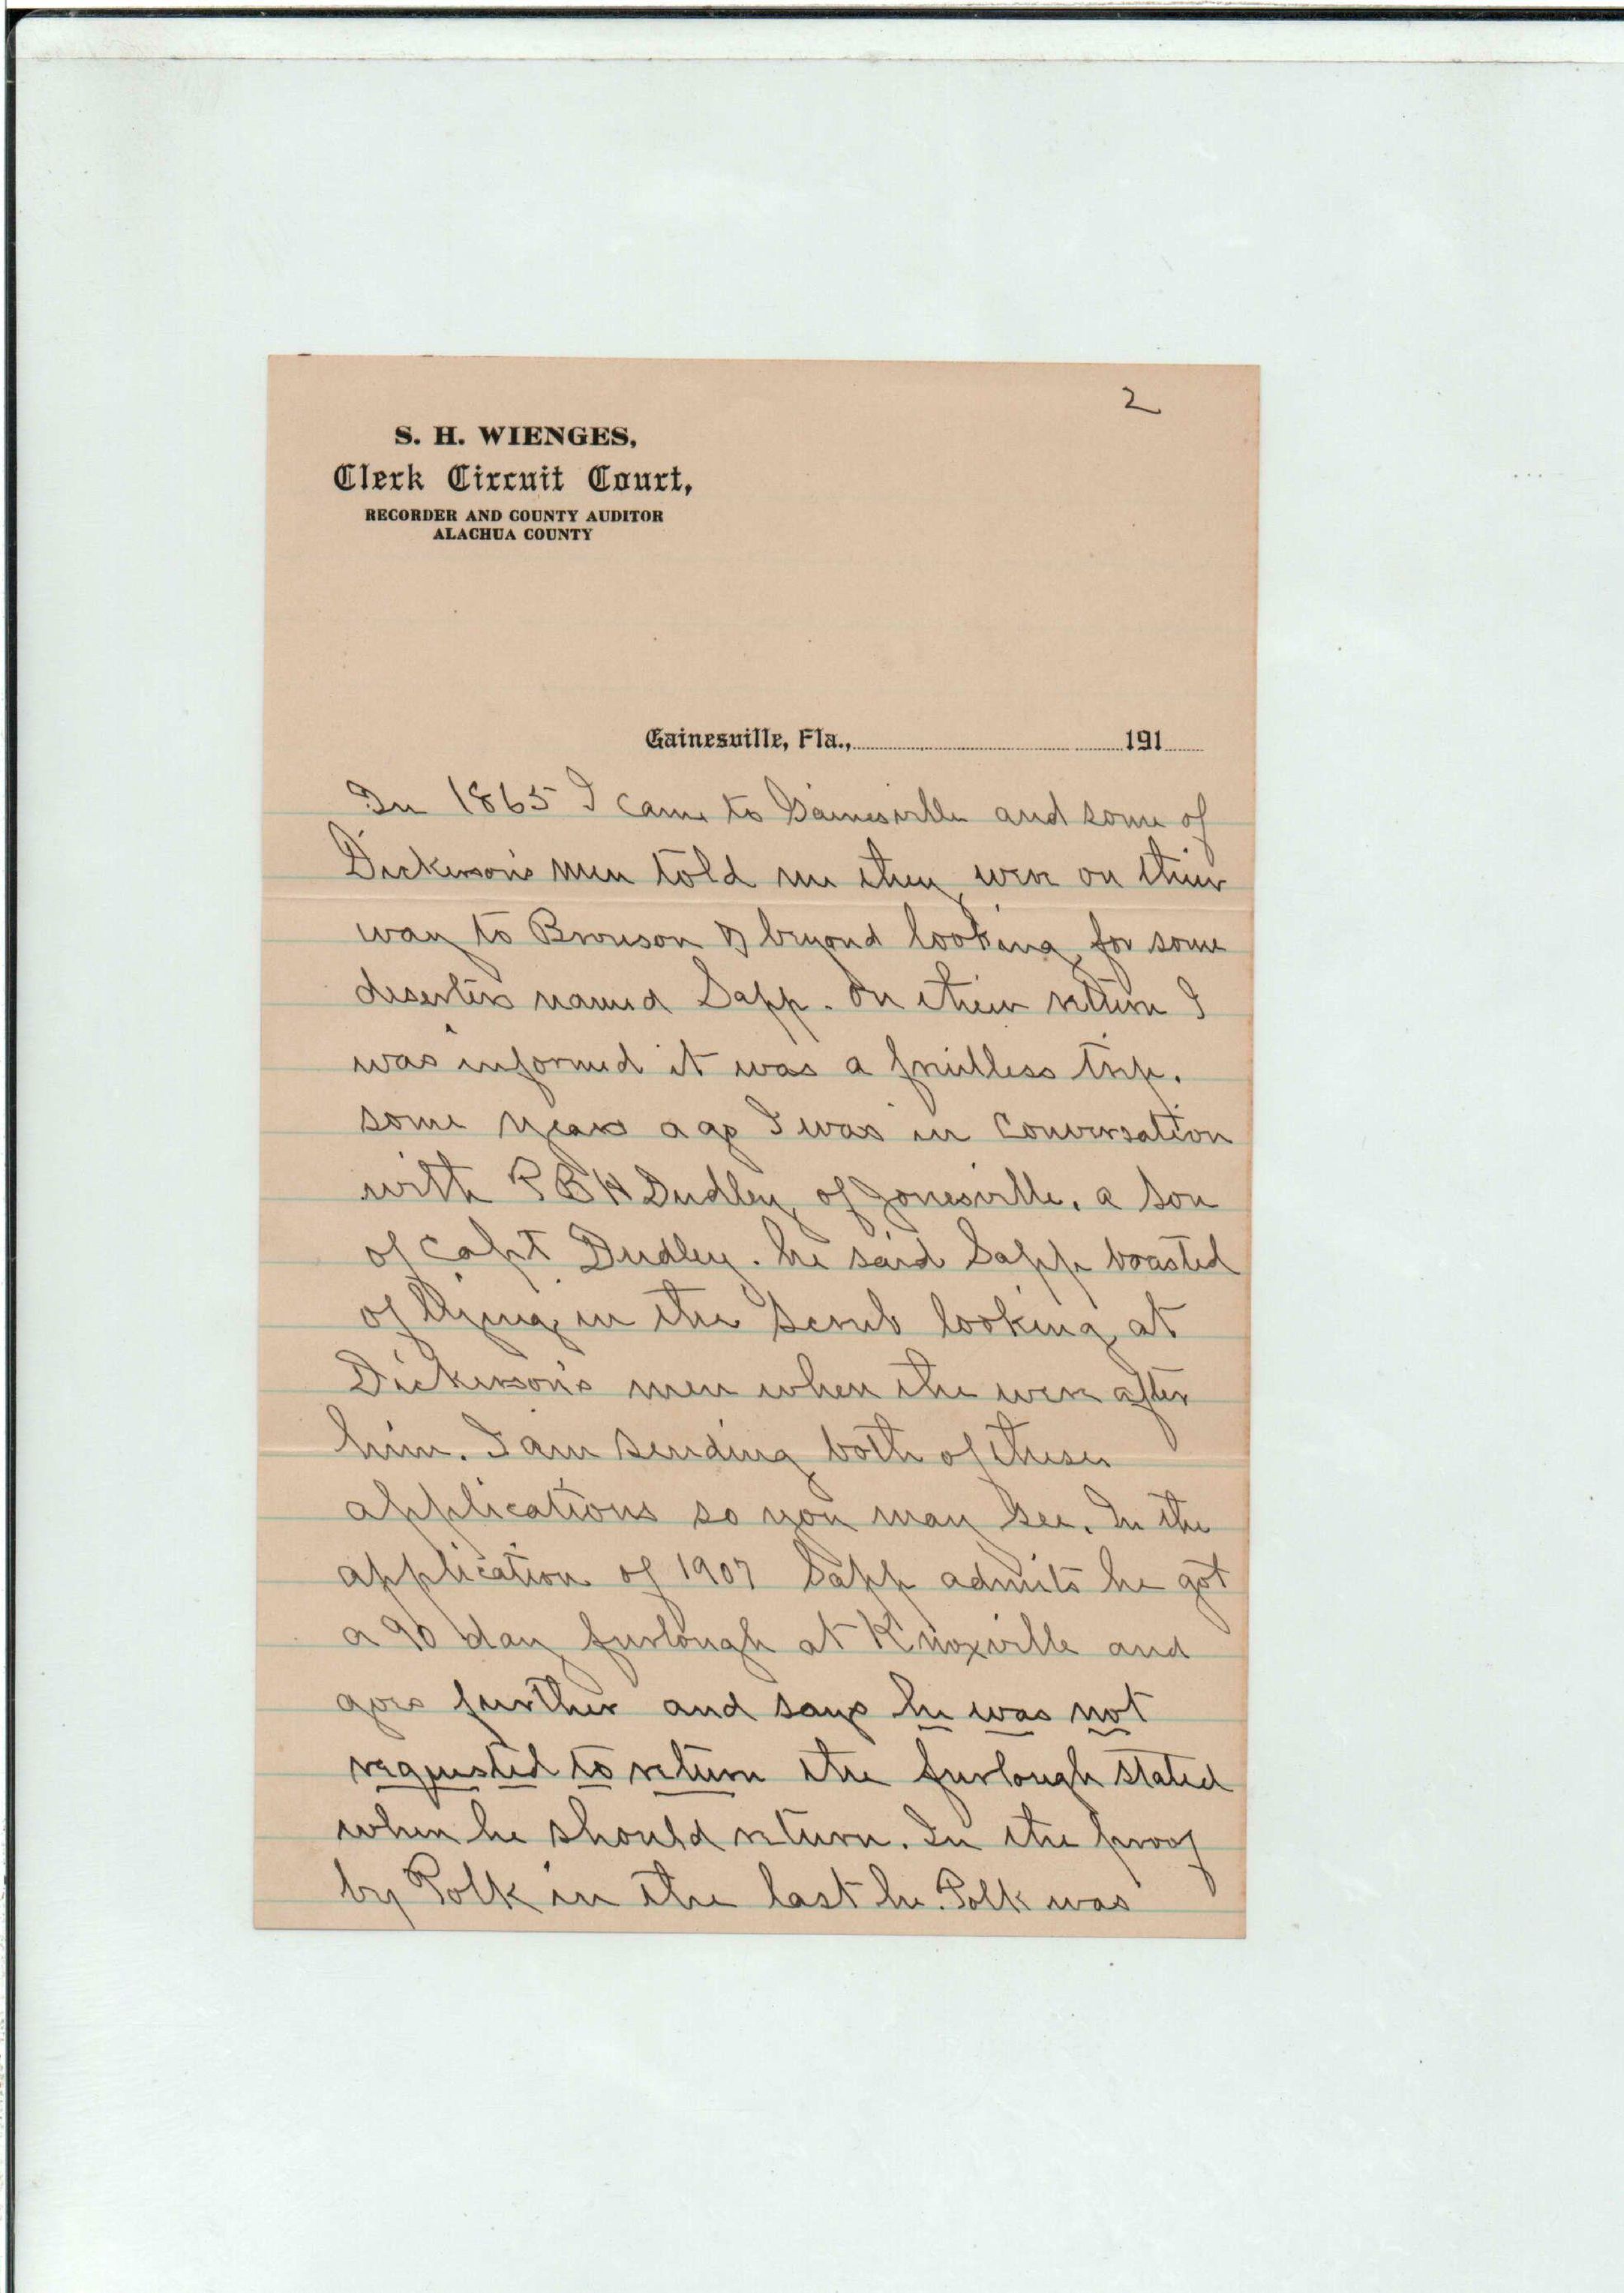 2
S. H. WIENGES,
Clerk Circuit Court,
RECORDER AND COUNTY AUDITOR
ALACHUA COUNTY
Gainesville, Fla., 191
In 1865 I came to Gainesville and some of
Dickerson's men told me they were on their
way to Bronson & beyond looking for some
deserters named Sapp. On their return I
was informed it was a fruitless trip.
some years ago I was in conversation
with P B H Dudley of Jonesville, a son
of Capt Dudley. he said Sapp boasted
of lying in the scrub looking at
Dickerson's men when the were after
him. I am sending both of these
applications so you may see. In the
application of 1907 Sapp admits he got
a 90 day furlough at Knoxville and
goes further and says he was not
requested to return the furlough stated
when he should return. In the proof
by Polk in the last he. Polk was